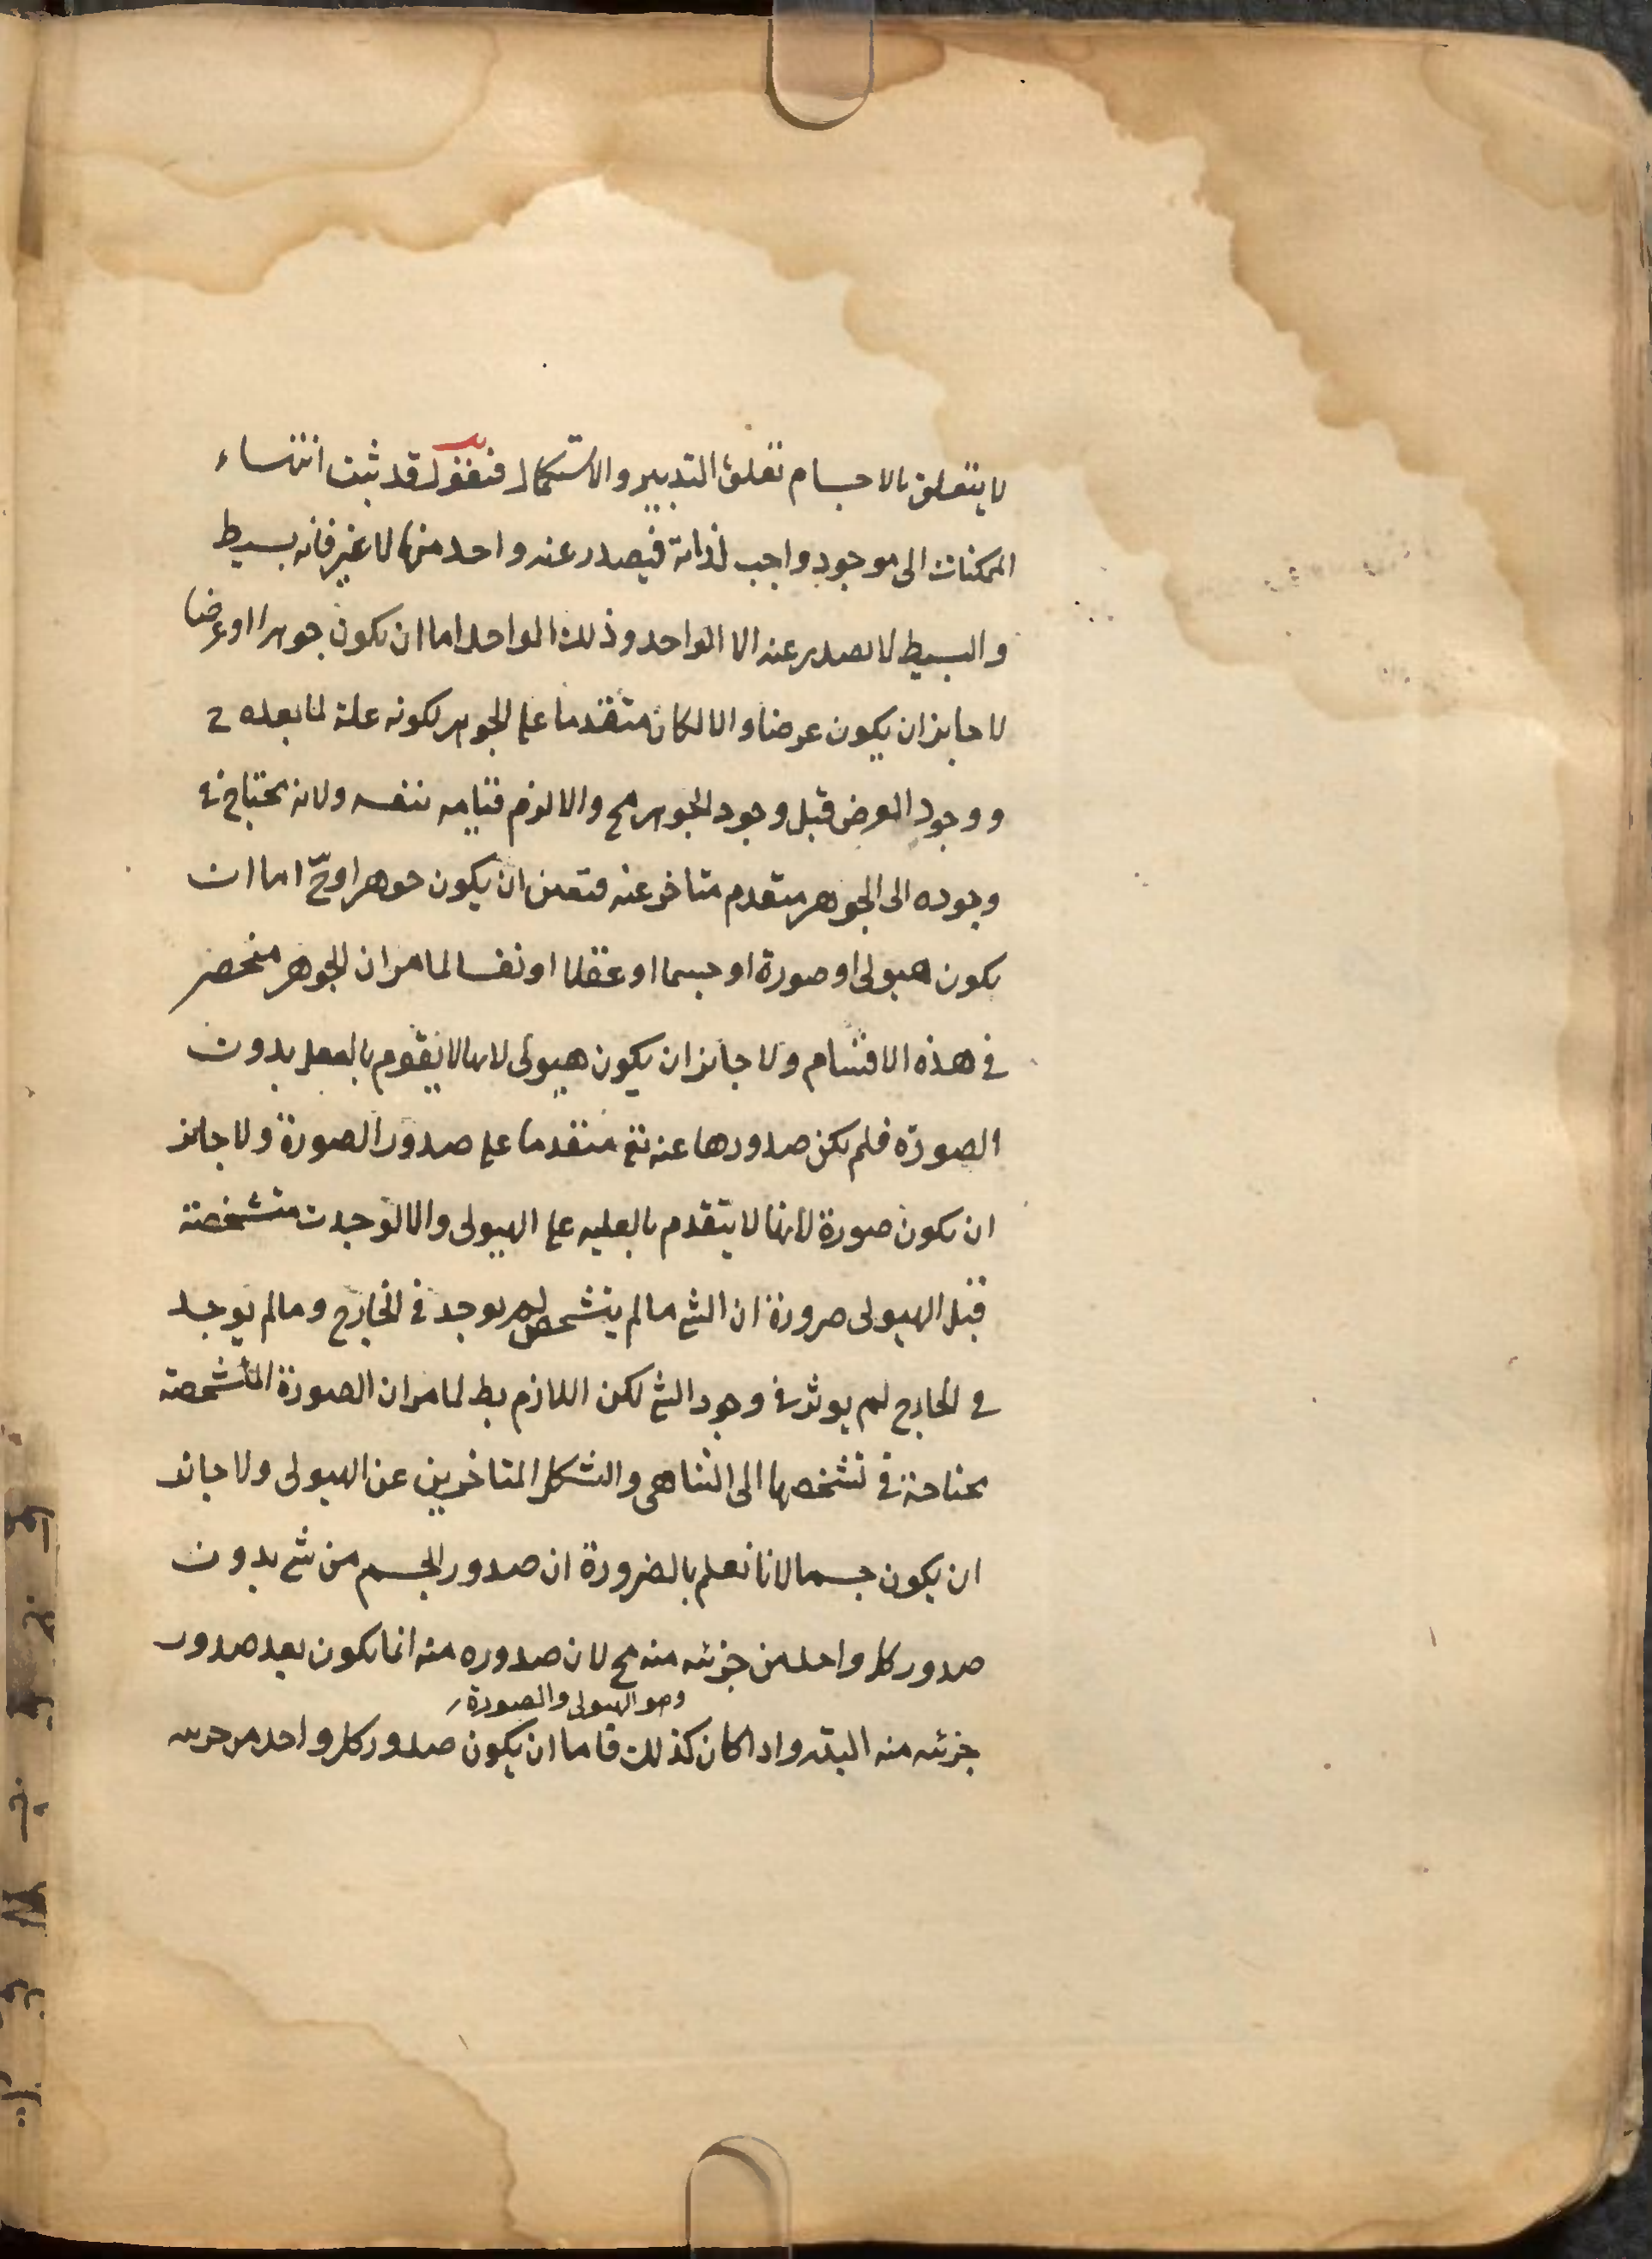 لا يتعلق بالاجسام تعلق التدبير والاستكمال فنقول قد ثبت انتهاء
الممكنات الى موجود واجب لذاته فيصدر عنه واحد منها لا غير فانه بسيط
والبسيط لا يصدر عنه الا الواحد وذلك الواحد اما ان يكون جوهرا او عرضا
لا جايز ان يكون عرضا والا لكان متقدما على الجوهر لكونه علة لما بعده ح
ووجود العرض قبل وجود الجوهر مح والا لزم قيامه بنفسه ولانه يحتاج في
وجوده الى الجوهر متقدم متاخر عنه فتعين ان يكون جوهرا وح اما ان
يكون هيولى او صورة او جسما او عقلا او نفسا لما مر ان الجوهر منحصر
في هذه الاقسام ولا جايز ان يكون هيولى لانها لا يقوم بالفعل بدون
الصورة فلم يكن صدورها عنه تع متقدما على صدور الصورة ولا جايز
ان يكون صورة لانها لا يتقدم بالعليه على الهيولى والا لوجدت متشخصة
قبل الهيولى ضرورة ان الشئ ما لم يتشخص لم يوجد في الخارج وما لم يوجد
في الخارج لم يوثر في وجود الشئ لكن اللازم بط لما مر ان الصورة المتشخصة
محتاجة في تشخصها الى التناهى والتشكل المتاخرين عن الهيولى ولا جائز
ان يكون جسما لانا نعلم بالضرورة ان صدور الجسم من شئ بدون
صدور كل واحد من جزئه منه مح لان صدوره منه انما يكون بعد صدور
وهو الهيولى والصورة
جزئه منه البته واذا كان كذلك فاما ان يكون صدور كل واحد من جزئه